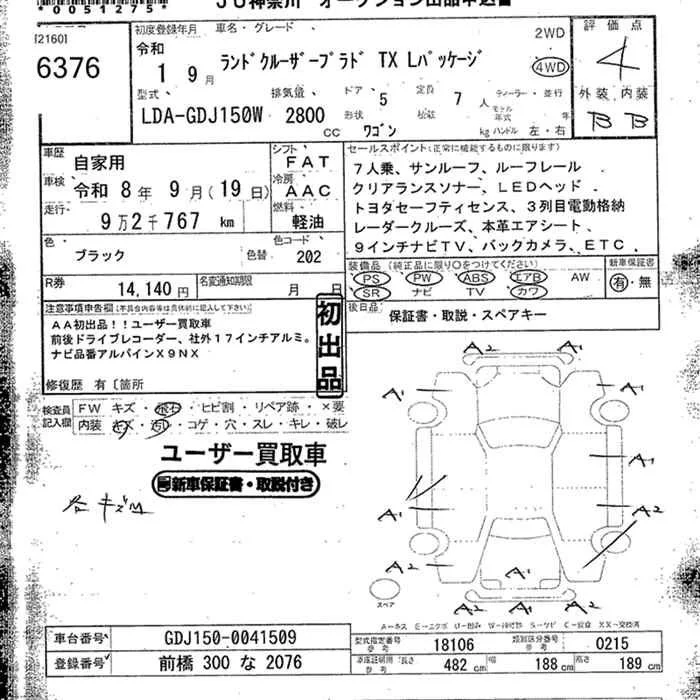 *0051275*
JU神奈川 オークション出品申込書
[2160]
6376
初度登録年月 車名・グレード
令和 1 9 月
ランドクルーザープラド TX Lパッケージ
2WD
4WD
評価点
4
型式 排気量 ドア 定員 ディーラー・並行
LDA-GDJ150W 2800 cc
5 7 人
形状 積載 モデル年式 年
ワゴン kg ハンドル 左・右
外装 内装
B B
車歴 自家用
シフト FAT
車検 令和 8 年 9 月 (19 日)
冷房 AAC
走行 9 万 2 千 767 km
燃料 軽油
色 ブラック 色替
色コード 202
R券 14,140 円
名変通知期限 月 日
セールスポイント(正常に機能するものに限ります)
7人乗、サンルーフ、ルーフレール
クリアランスソナー、LEDヘッド
トヨタセーフティセンス、3列目電動格納
レーダークルーズ、本革エアシート
9インチナビTV、バックカメラ、ETC、
装備品 (純正品に限り○をつけてください)
PS PW ABS エアB AW
SR ナビ TV カワ
新車保証書
有・無
後日品 保証書・取説・スペアキー
注意事項申告欄
AA初出品!!ユーザー買取車
前後ドライブレコーダー、社外17インチアルミ。
ナビ品番アルパインX9NX
修復歴 有 [箇所
初出品
検査員記入欄
FW キズ・飛石・ヒビ割・リペア跡・×要
内装 キズ・汚れ・コゲ・穴・スレ・キレ・破レ
ユーザー買取車
新車保証書・取説付き
各キズM
A2 A2
A1 A1
A1
A1 A2
A2 A1 A2
A2 A2
スペア
車台番号 GDJ150-0041509
登録番号 前橋 300 な 2076
型式指定番号 参考 18106
類別区分番号 参考 0215
車庫証明用 参考 長さ 482 cm 幅 188 cm 高さ 189 cm